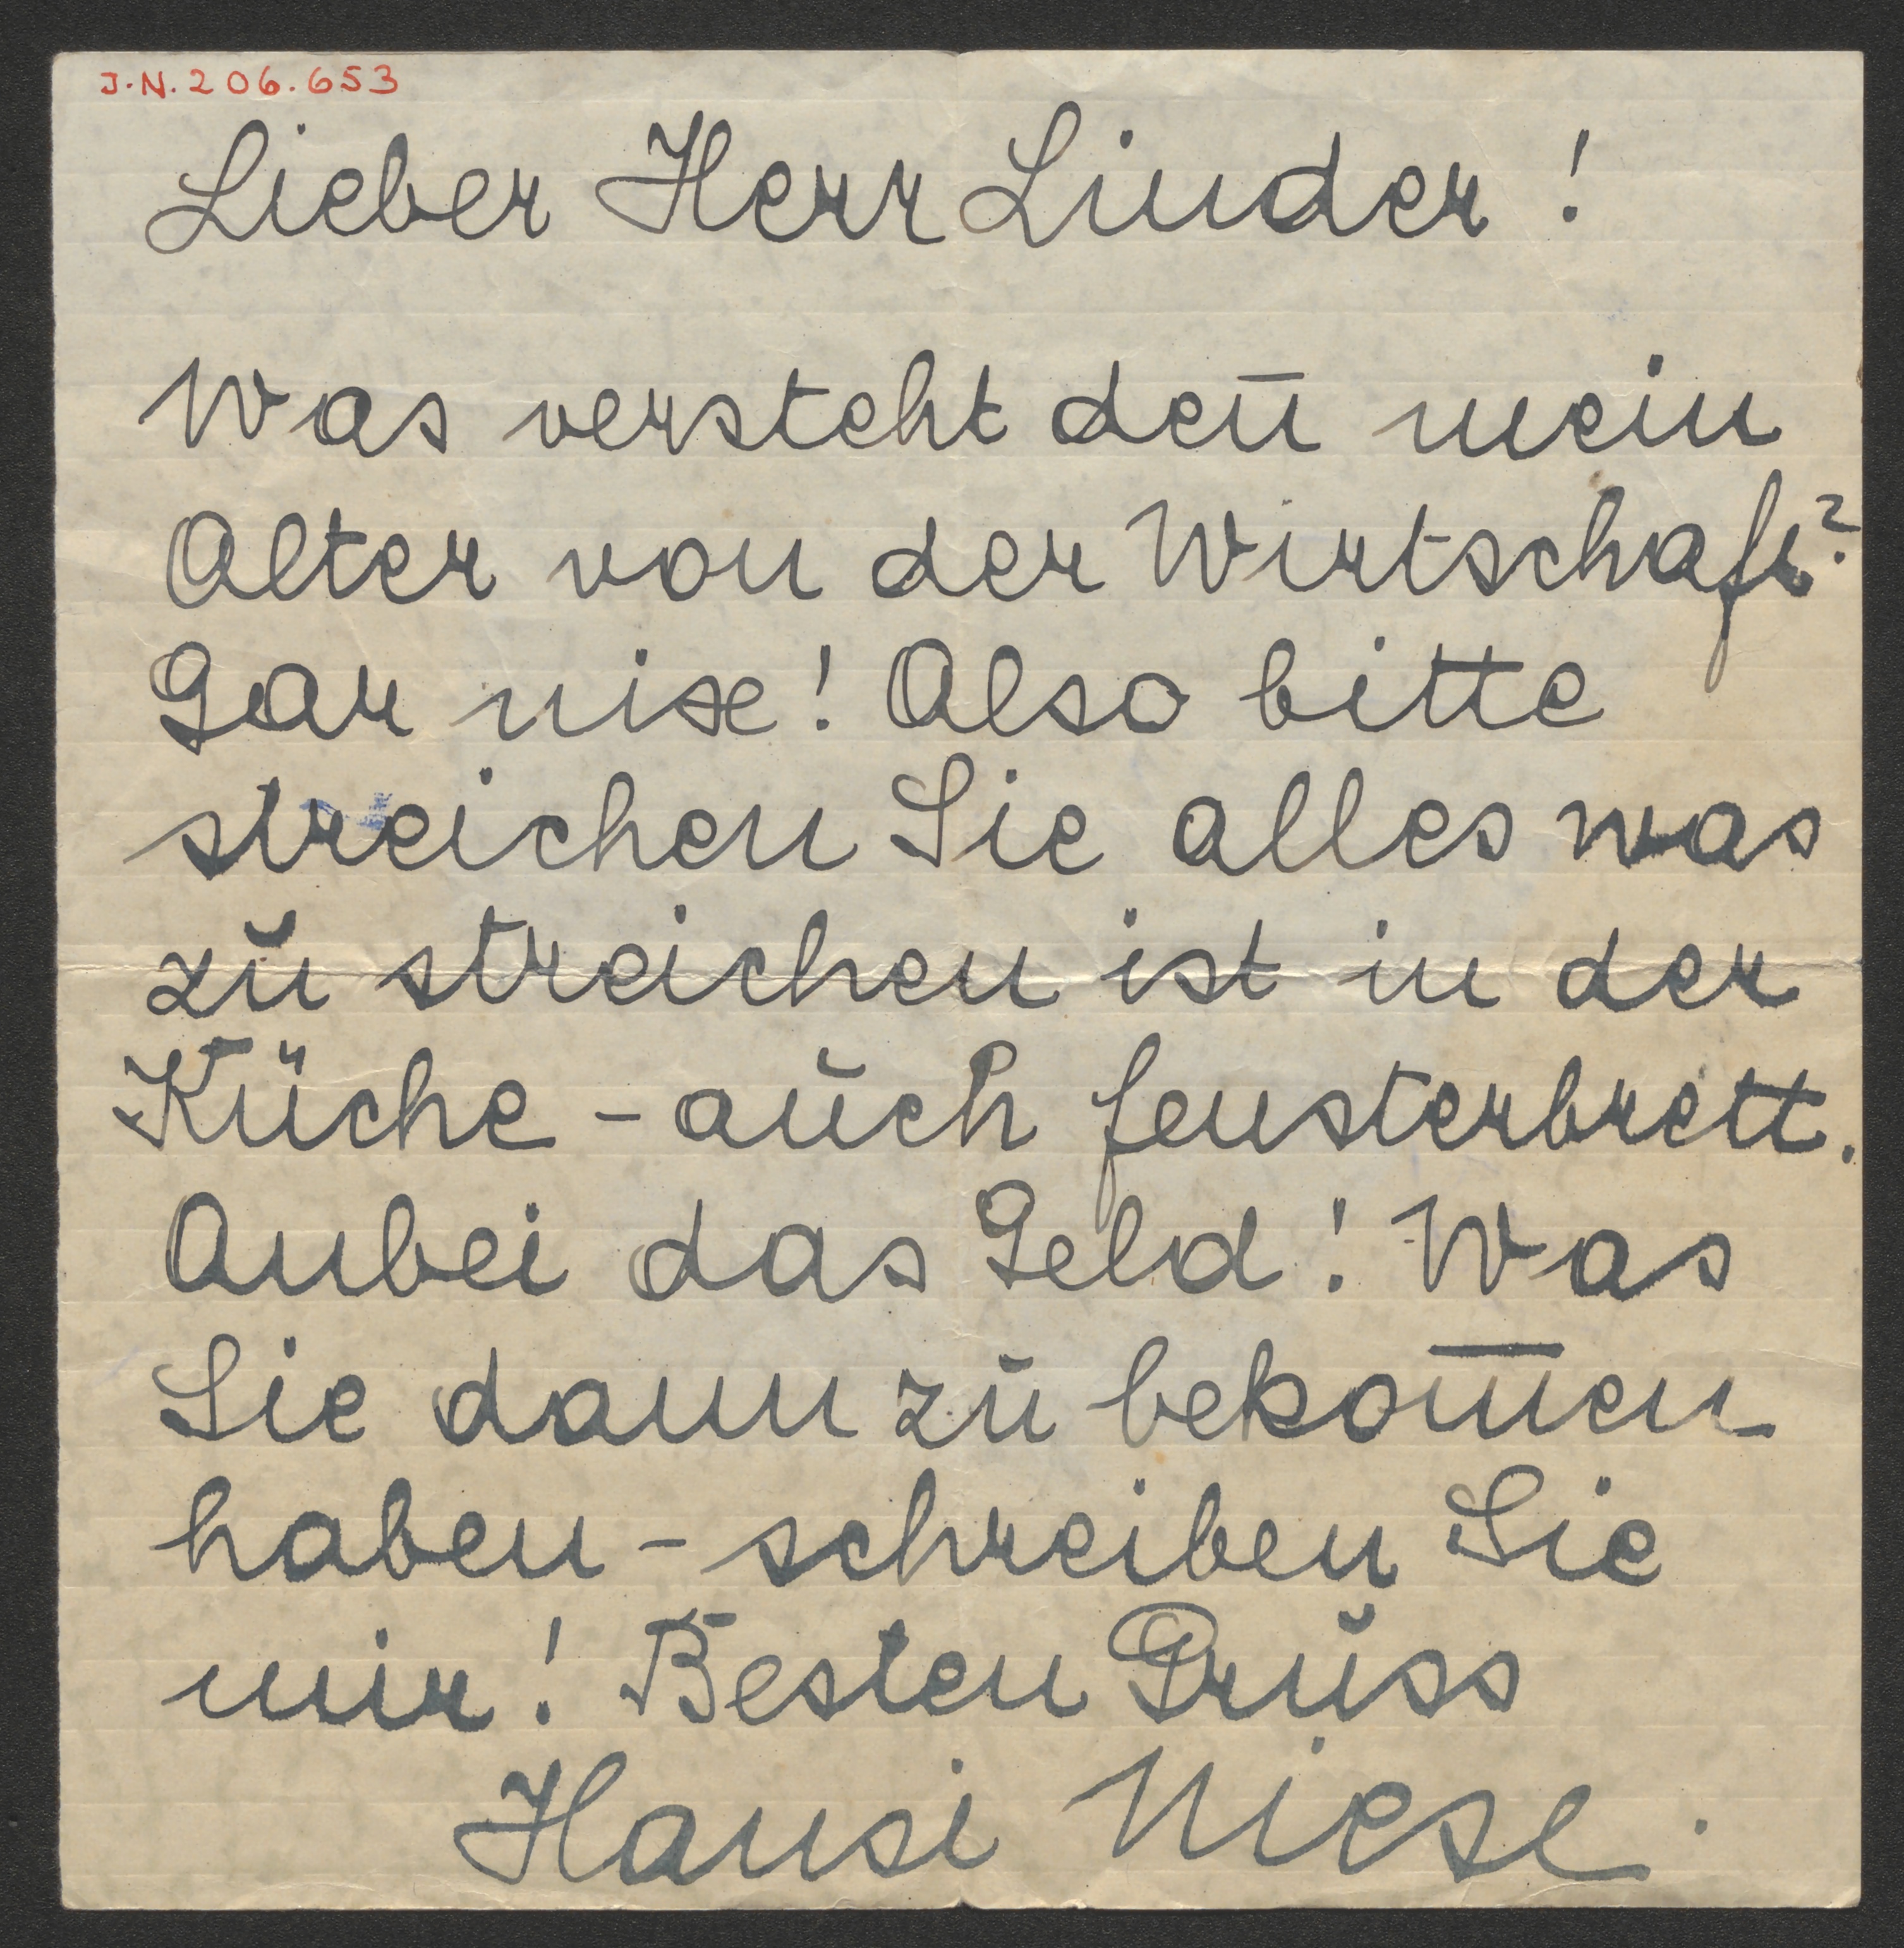 J.N. 206.653
Lieber Herr Linder!
Was versteht den̄ mein
Alter von der Wirtschaft?
Gar nix! Also bitte
streichen Sie alles was
zu streichen ist in der
Küche - auch Fensterbrett.
Anbei das Geld! Was
Sie dann zu bekom̄en
haben - schreiben Sie
mir! Besten Gruss
Hansi Niese.